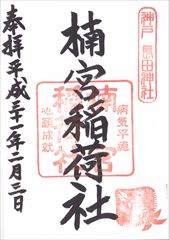 神戸 長田神社
楠宮稲荷社
病気平癒
心願成就
楠宮稲荷社
奉拝平成三十一年二月三日